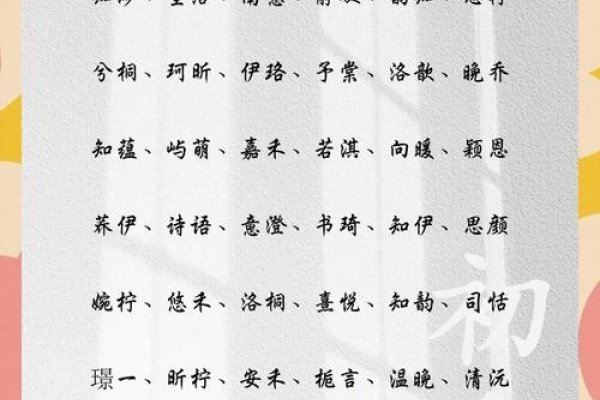 兮桐、珂昕、伊珞、予棠、洛歆、晚乔
知蕴、屿萌、嘉禾、若淇、向暖、颖恩
荞伊、诗语、意澄、书琦、知伊、思颜
初
婉柠、悠禾、洛桐、熹悦、知韵、司恬
璟一、昕柠、安禾、栀言、温晚、清沅